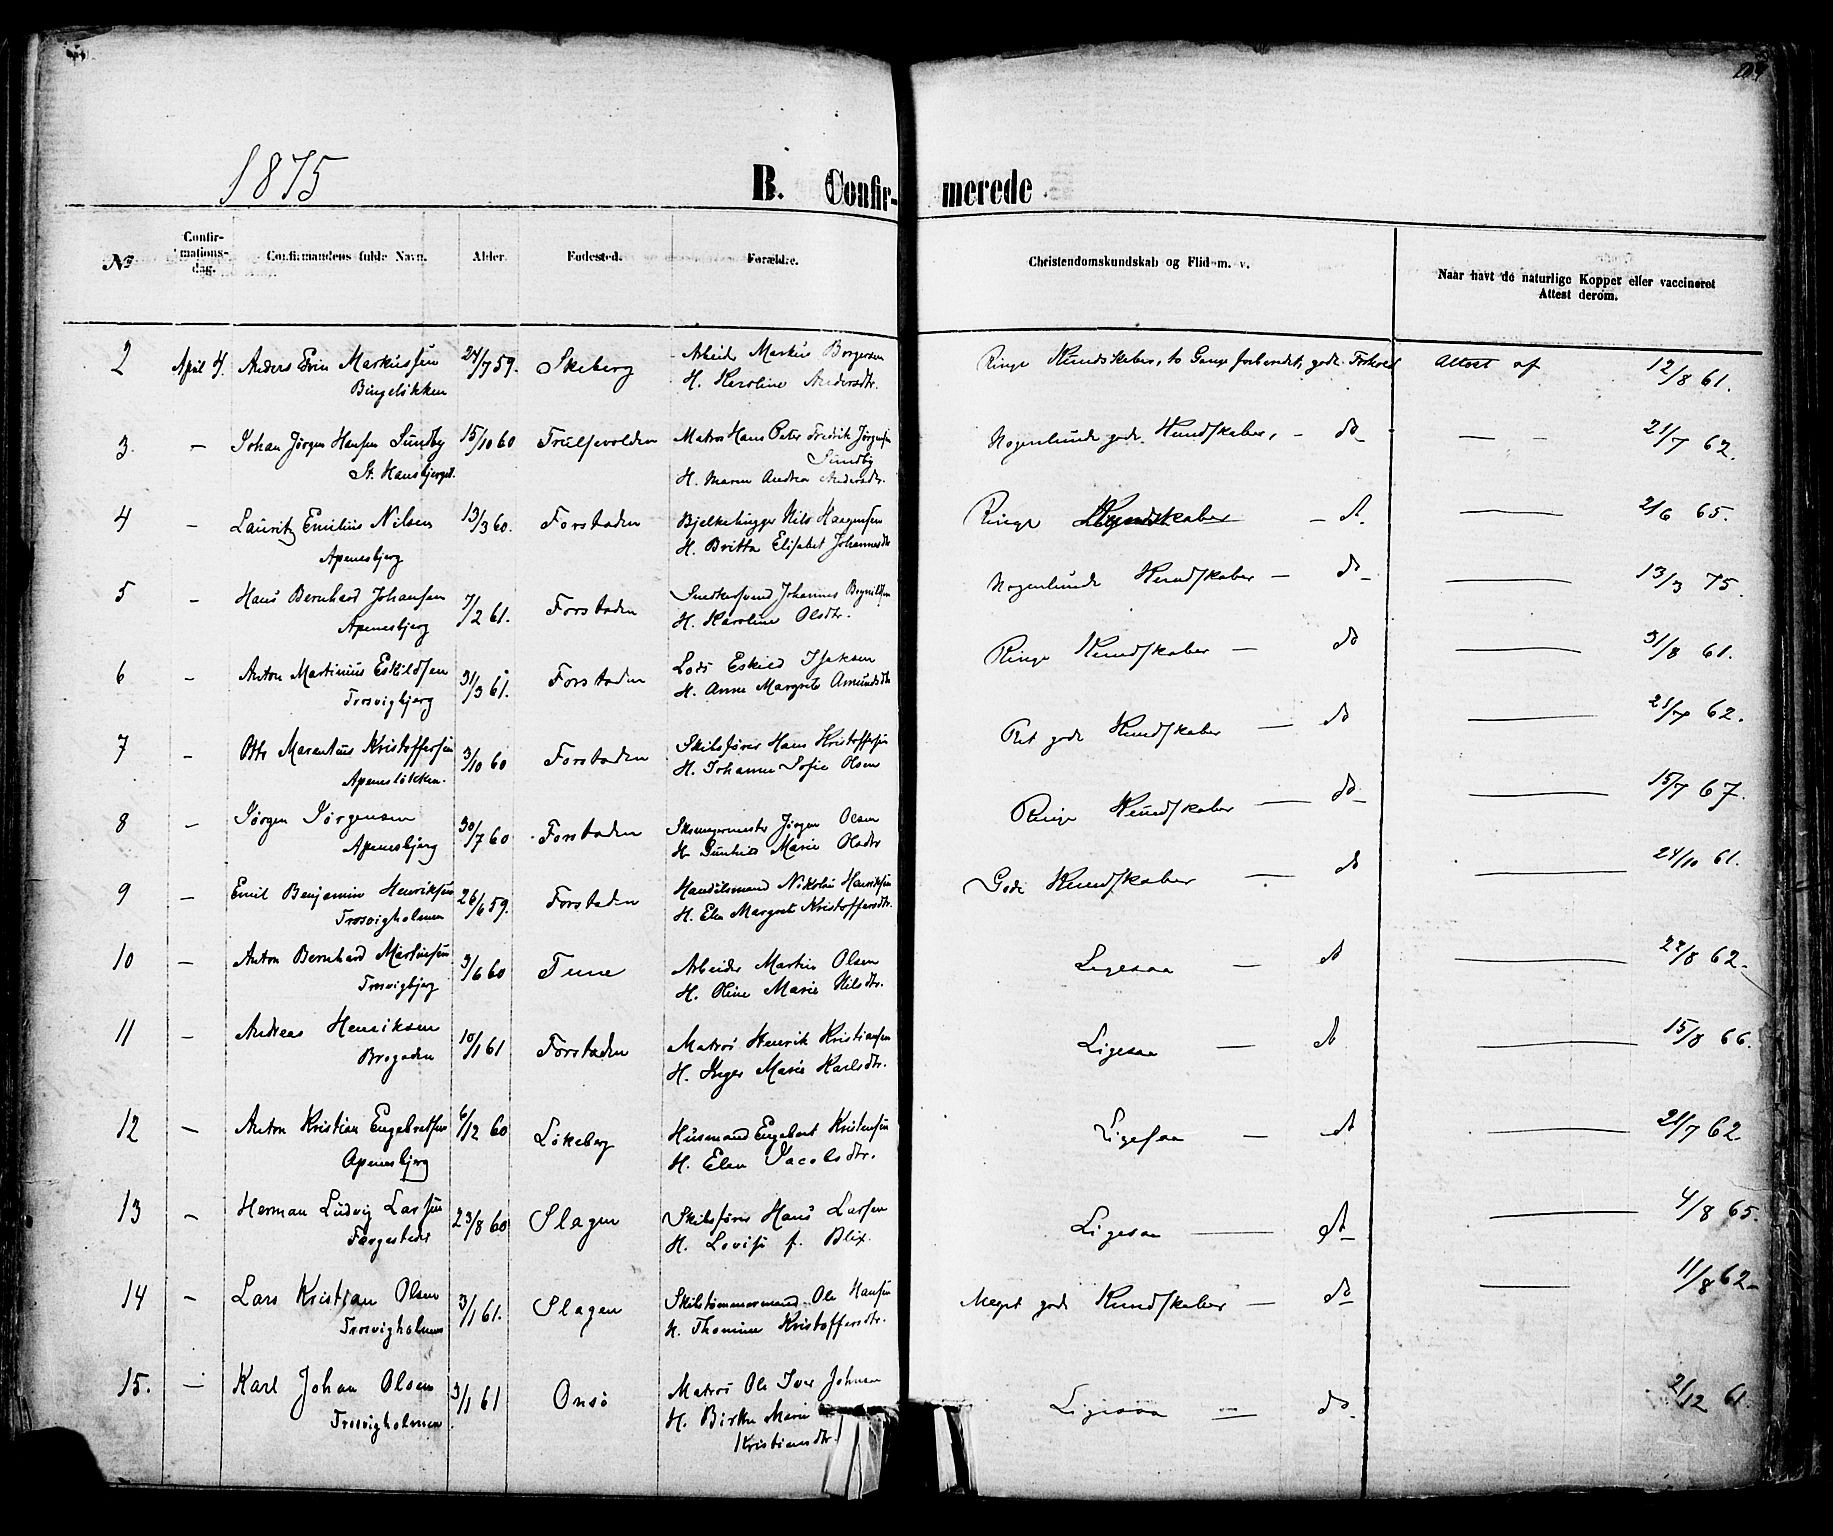 1875
B. Confir- merede
No
Confir-
mations-
dag.
Confirmandens fulde Navn.
Alder.
Fødested.
Forældre.
Christendomskundskab og Flid m. v.
Naar havt de naturlige Kopper eller vaccineret
Attest derom.
2 April 4. Anders Markussen 24/7 59. Skeberg Arbeider Markus Borgersen Ringe Kundskaber, to Gange forberedet, gode Forhold Attest af 12/8 61.
Bingeløkken H. Karoline Andersdtr.
3. - Johan Jørgen Hansen Sundby 15/10 60 Trulsevolden Matros Hans Peter Fredrik Jørgensen Nogenlunde gode Kundskaber, - do - - 21/7 62.
St. Hansbjerget. Sundby
H. Maren Andrea Andersdtr.
4 - Lauritz Emilius Nilsen 13/3 60. Forstaden Bjelkehugger Nils Haagensen Ringe Kundskaber - do 2/6 65.
Apenesbjerg H. Britta Elisabet Johannesdtr
5 - Hans Bernhard Johansen 7/2 61. Forstaden Snedkersvend Johannes Nogenlunde Kundskaber - do 13/3 75.
Apenesbjerg H. Karoline Olsdtr.
6 - Anton Martinius Eskildsen 31/3 61. Forstaden Lods Eskild Isaksen Ringe Kundskaber - do 31/8 61.
Trosvigbjerg H. Anne Margrete Amundsdtr
7 - Otto Marentius Kristoffersen 3/10 60 Forstaden Skibsfører Hans Kristoffersen Ret gode Kundskaber - do 21/7 62.
Apenesløkken. H. Johanne Sofie Olsen
8 - Jørgen Jørgensen 30/7 60 Forstaden Jørgen Olsen Ringe Kundskaber - do 15/7 67.
Apenesbjerg H. Marie Olsdtr
9 - Emil Benjamin Henriksen 26/6 59. Forstaden Handelsmand Nikolai Henriksen Gode Kundskaber - do 24/10 61.
Trosvigholmen H. Elen Margrete Kristoffersdtr.
10 - Anton Bernhard Martinsen 3/6 60 Tune Arbeider Martin Olsen Ligesaa - do 22/8 62.
Trosvigbjerg H. Oline Marie Nilsdtr.
11 - Andreas Henriksen 10/1 61 Forstaden Matros Henrik Kristiansen Ligesaa - do 15/8 66.
Brogaden H. Inger Marie Karlsdtr.
12 - Anton Kristian Engebretsen 6/12 60 Løkeberg Husmand Engebret Kristensen Ligesaa - do 21/7 62
Apenesbjerg H. Elen Jacobsdtr.
13 - Herman Ludvig Larsen 23/8 60 Slagen Skibsfører Hans Larsen Ligesaa - do 4/8 65.
Færgestedet H. Lovise f. Blix.
14 - Lars Kristian Olsen 3/1 61. Slagen Skibstømmermand Ole Hansen Meget gode Kundskaber - do 11/8 62-
Trosvigholmen H. Thomine Kristoffersdtr.
15. - Karl Johan Olsen 3/1 61 Onsø Matros Ole Iver Johnsen Ligesaa - do. 2/12 61.
Trosvigholmen H. Birthe Marie
Kristiansdtr.